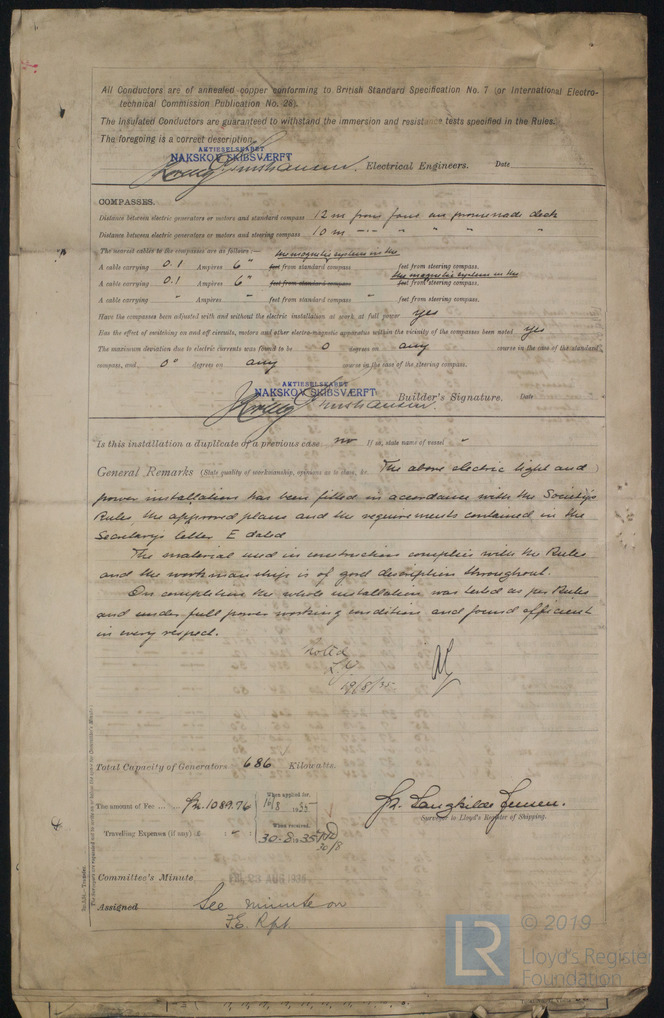 All Conductors are of annealed copper conforming to British Standard Specification No. 7 (or International Electro-
technical Commission Publication No. 28).
The Insulated Conductors are guaranteed to withstand the immersion and resistance tests specified in the Rules.
The foregoing is a correct description.
AKTIESELSKABET
NAKSKOV SKIBSVÆRFT
Electrical Engineers. Date
COMPASSES.
Distance between electric generators or motors and standard compass 12 m from fans on promenade deck
Distance between electric generators or motors and steering compass 10 m —"— " " " "
The nearest cables to the compasses are as follows:— the magnetic system in the
A cable carrying 0.1 Ampères 6" feet from standard compass feet from steering compass.
the magnetic system in the
A cable carrying 0.1 Ampères 6" feet from standard compass feet from steering compass.
A cable carrying " Ampères " feet from standard compass " feet from steering compass.
Have the compasses been adjusted with and without the electric installation at work at full power yes
Has the effect of switching on and off circuits, motors and other electro-magnetic apparatus within the vicinity of the compasses been noted yes
The maximum deviation due to electric currents was found to be 0 degrees on any course in the case of the standard
compass, and 0° degrees on any course in the case of the steering compass.
AKTIESELSKABET
NAKSKOV SKIBSVÆRFT
Builder's Signature. Date
Is this installation a duplicate of a previous case no If so, state name of vessel "
General Remarks (State quality of workmanship, opinions as to class, &c. The above electric light and
power installation has been fitted in accordance with the Society's
Rules, the approved plans and the requirements contained in the
Secretarys letter E dated
The material used in construction complies with the Rules
and the workmanship is of good description throughout.
On completion the whole installation was tested as per Rules
and under full power working condition and found efficient
in every respect.
Noted
19/8/35
Total Capacity of Generators 686 Kilowatts.
The amount of Fee ... Kr. 1089.76
When applied for,
16/8 1935
When received,
30.8.1935
30/8
Travelling Expenses (if any) £ : " :
Surveyor to Lloyd's Register of Shipping.
Committee's Minute
23 AUG 1935
Assigned See minute on
F.E. Rpt
© 2019
Lloyd's Register
Foundation
LR